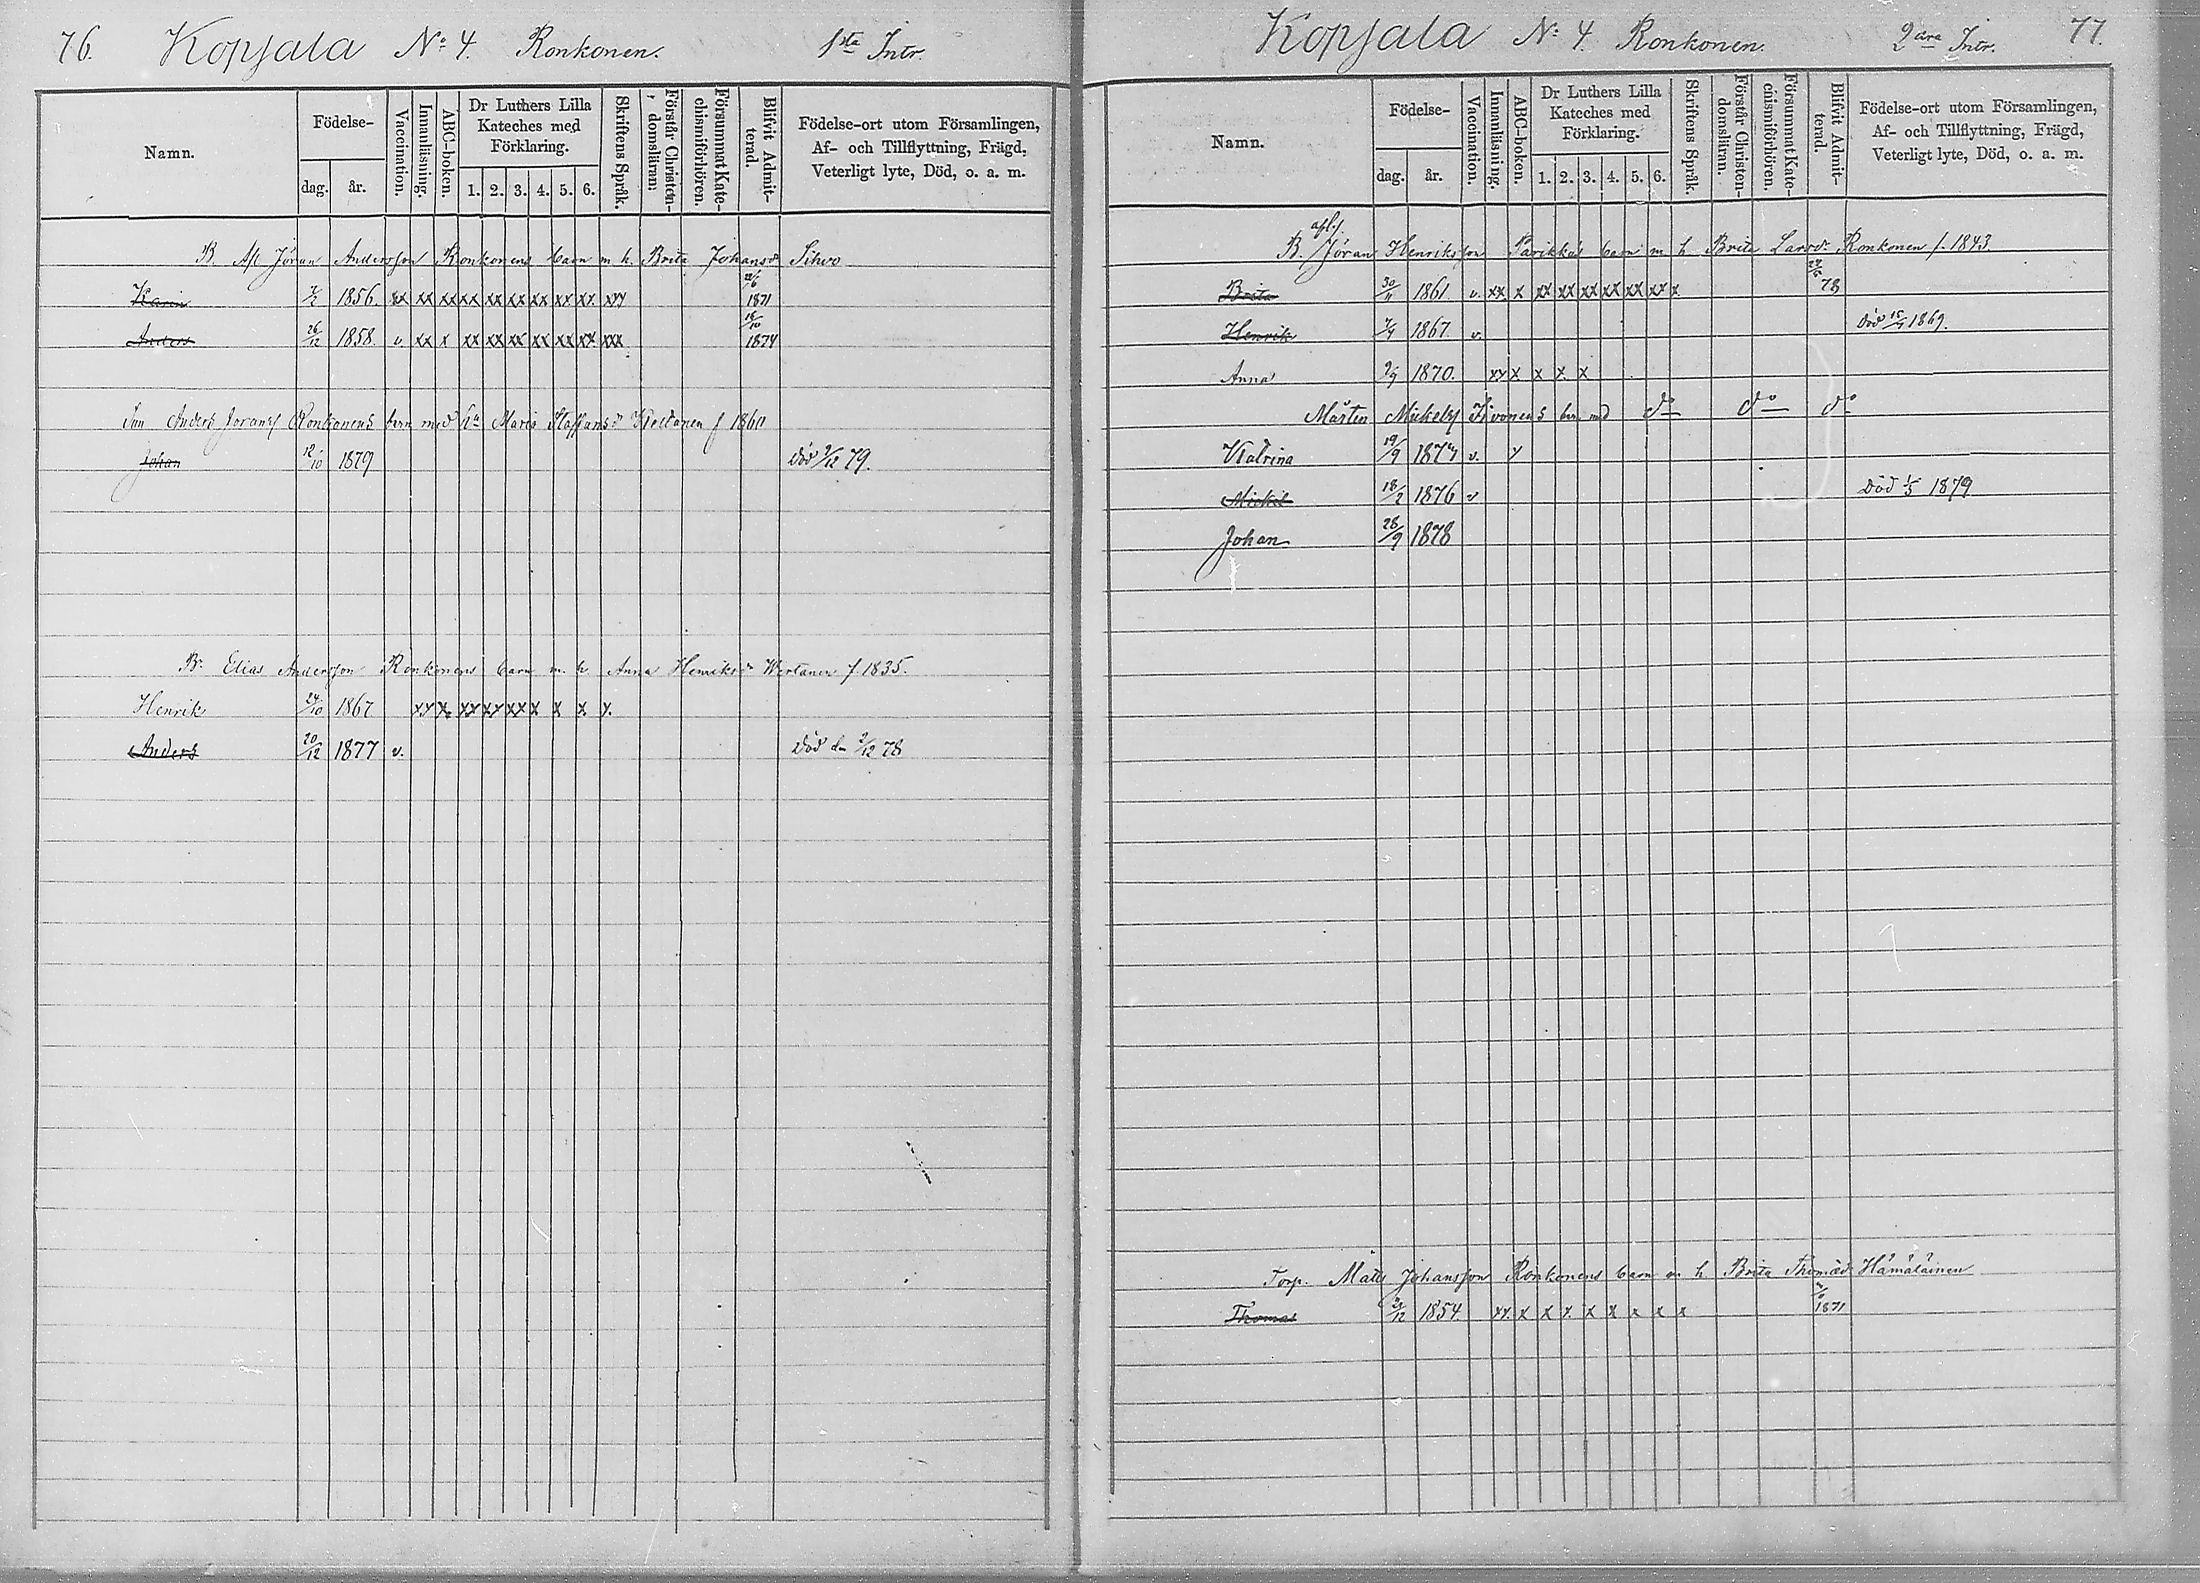 76. Kopsala No 4. Ronkonen. 1sta Intr.
Namn.
Födelse-
dag. år.
Vaccination.
Innanläsning.
ABC-boken.
Dr Luthers Lilla Kateches med Förklaring.
1. 2. 3. 4. 5. 6.
Skriftens Språk.
Förstår Christendomsläran.
Försummat Katechismiförhören.
Blifvit Admitterad.
Födelse-ort utom Församlingen,
Af- och Tillflyttning, Frägd,
Veterligt lyte, Död, o. a. m.
B. Afl Jöran Andersson Ronkonens barn m. h. Brita Johansdr Sihvo
Karin 7/2 1856. xx xx xx xx xx xx xx xx xx xxx 1871
Anders 26/12 1858. v xx x xx xx xx xx xx xx xxx 16/10 1874
Inn Anders Jöranss Ronkonens barn med hu Maria Staffansdr f 1860
Johan 12/10 1879 död 3/12 79.
B. Elias Andersson Ronkonens barn m. h. Anna Henriksdr Wertanen f. 1835.
Henrik 24/10 1867 xx x xx xx xx x x x x
Anders 20/12 1877 v. död den 2/12 78
Kopsala No 4. Ronkonen. 2dra Intr. 77.
Namn.
Födelse-
dag. år.
Vaccination.
Innanläsning.
ABC-boken.
Dr Luthers Lilla Kateches med Förklaring.
1. 2. 3. 4. 5. 6.
Skriftens Språk.
Förstår Christendomsläran.
Försummat Katechismiförhören.
Blifvit Admitterad.
Födelse-ort utom Församlingen,
Af- och Tillflyttning, Frägd,
Veterligt lyte, Död, o. a. m.
afl.
B. Jöran Henriksson Parikkas barn m h Brita Larsdr Ronkonen f. 1843
Brita 30/11 1861 v. xx x xx xx xx xx xx xx x 78
Henrik 7/9 1867. v. död 15/7 1869.
Anna 2/9 1870. xx x x x x
Mårten Mickelss barn med do do do
Katrina 19/9 1874 v. x
Mickel 18/2 1876 v Död 1/5 1879
Johan 28/9 1878
Torp. Mats Johansson Ronkonens barn m h Brita Thomasdr Hämäläinen
Thomas 21/12 1854. xx x x x x x x x x 1871